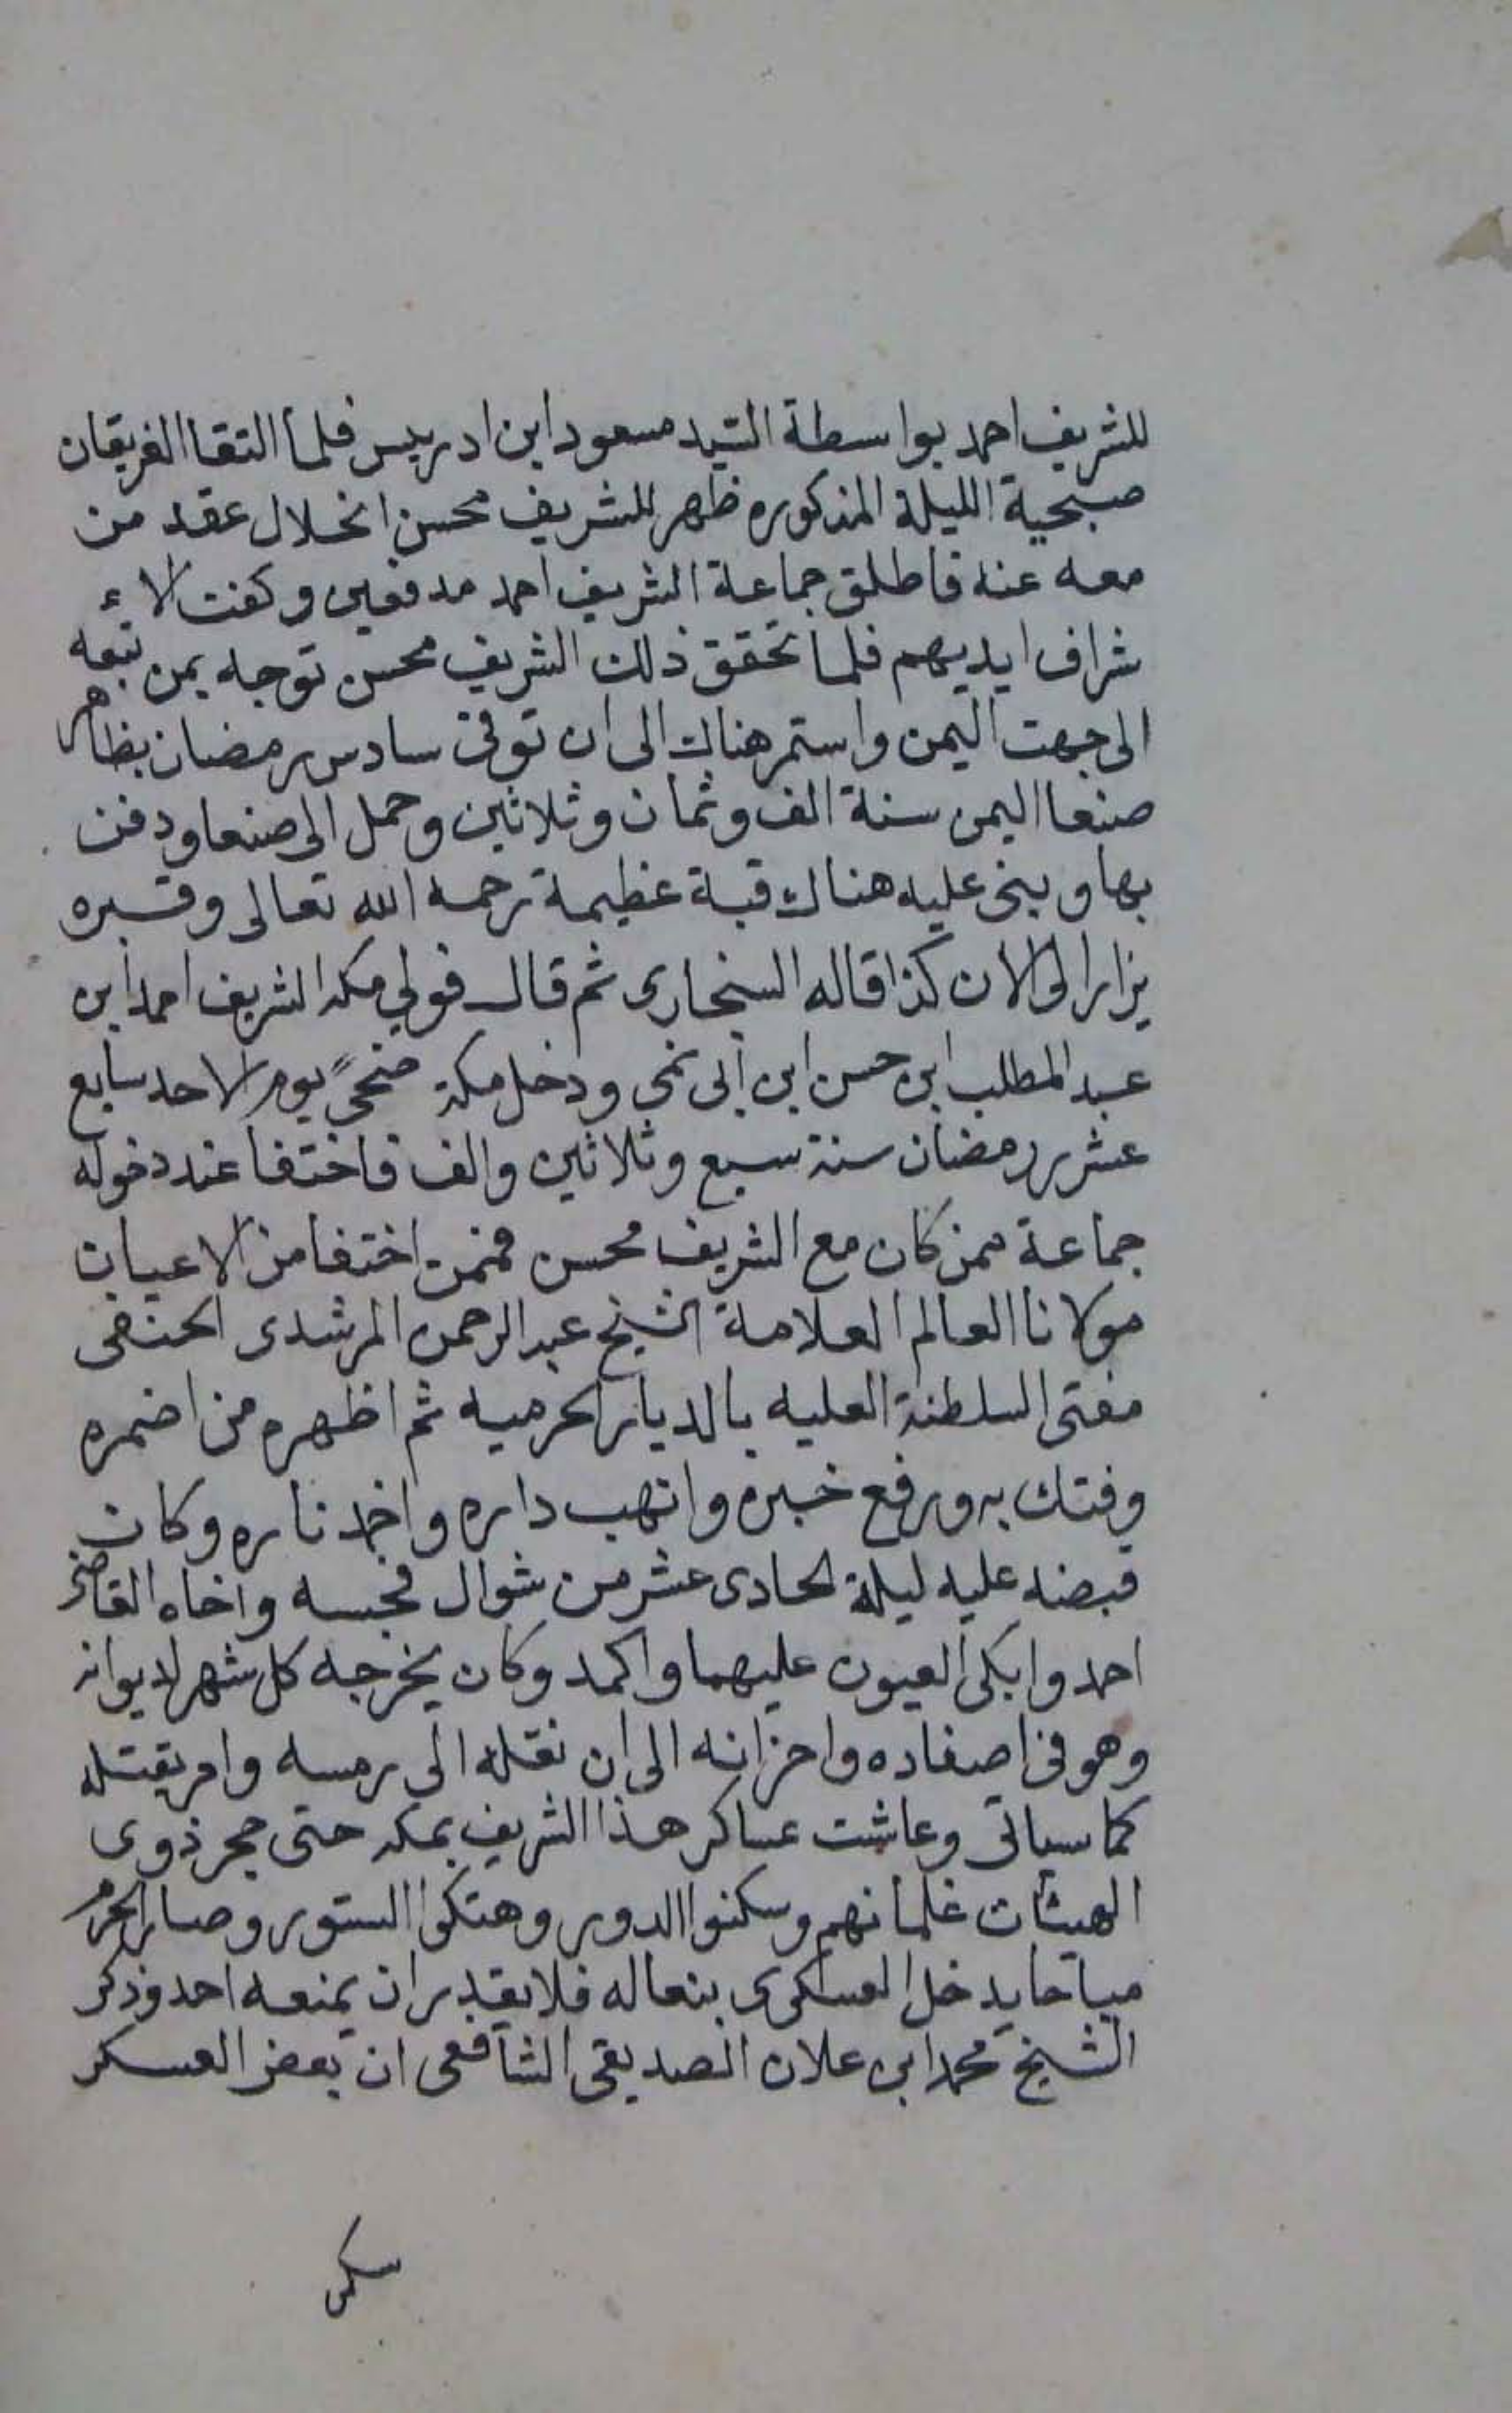 للشريف احمد بواسطة السيد مسعود ابن ادريس فلما التقا الفريقان
صبحية الليلة المذكوره ظهر للشريف محسن انحلال عقد من
معه عنه فاطلق جماعة الشريف احمد مدفعين وكفت الاء
شراف ايديهم فلما تحقق ذلك الشريف محسن توجه بمن تبعه
الى جهت اليمن واستمر هناك الى ان توفى سادس رمضان بظاهر
صنعا اليمن سنة الف وثمان وثلاثين وحمل الى صنعا ودفن
بها وبنى عليه هناك قبة عظيمة رحمه الله تعالى وقبره
يزار الى الان كذا قاله السنجارى ثم قال فولي مكه الشريف احمد ابن
عبد المطلب ابن حسن ابن ابى نمى ودخل مكة ضحىً يوم الاحد سابع
عشر رمضان سنة سبع وثلاثين والف فاختفا عند دخوله
جماعة ممن كان مع الشريف محسن فممن اختفا من الاعيان
مولانا العالم العلامة الشيخ عبد الرحمن المرشدى الحنفى
مفتى السلطنة العليه بالديار الحرميه ثم اظهره من اضمره
وفتك به ورفع خبره وانهب داره واخمد ناره وكان
قبضه عليه ليلة الحادى عشر من شوال فحبسه واخاه القاضى
احمد وابكى العيون عليهما واكمد وكان يخرجه كل شهر لديوانه
وهو فى اصفاده واحزانه الى ان نقله الى رمسه وامر بقتله
كما سياتى وعاشت عساكر هذا الشريف بمكه حتى حجر ذوى
الهيئات غلمانهم وسكنوا الدور وهتكوا الستور وصار الحرم
مباحا يدخل العسكرى بنعاله فلا يقدر ان يمنعه احد وذكر
الشيخ محمد ابن علان الصديقى الشافعى ان بعض العسكر
سكر